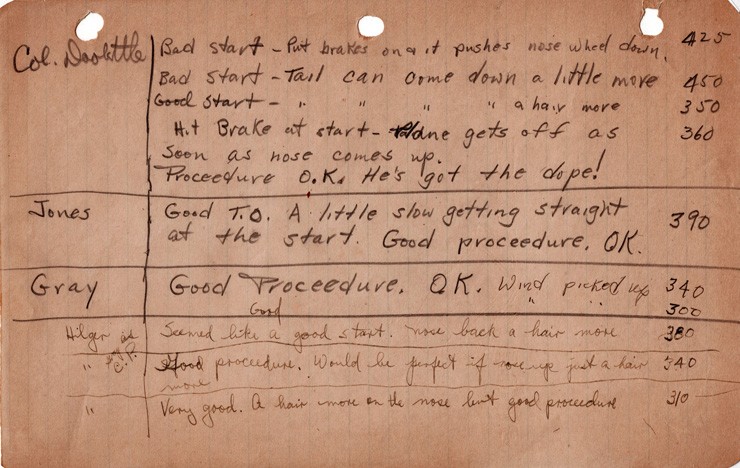 Col. Doolittle Bad start - Put brakes on & it pushes nose wheel down. 425
Bad start - Tail can come down a little more 450
Good start - " " " " a hair more 350
Hit Brake at start - Plane gets off as 360
soon as nose comes up.
Proceedure O.K. He's got the dope!
Jones Good T.O. A little slow getting straight 390
at the start. Good proceedure. OK.
Gray Good Proceedure. OK. Wind picked up 340
Good " " 300
Hilger as Seemed like a good start. nose back a hair more 380
C.P.
" Good proceedure. Would be perfect if nose up just a hair 340
more
" Very good. A hair more on the nose but good proceedure 310